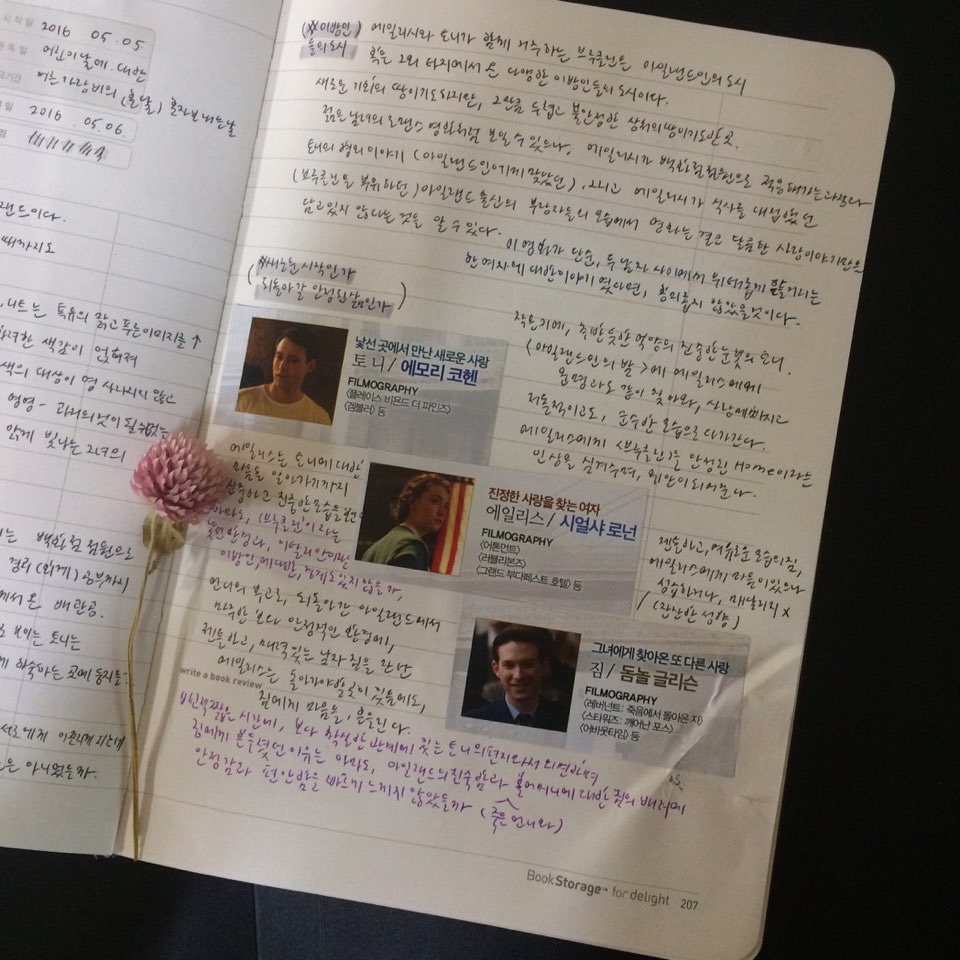 시작일
2016 05.05
독일
어린이날에. 대한
기간
어른가랑비의 (혼날) 혼자보내는날
2016 .05.06.
랜드이다.
때까지도
니트는 특유의 맑고 푸른이미지를 ↑
려한 색감이 얹혀져
색의 대상이 영 사나지지 않고
영영 - 과거의것이 필수없는
맑게 빛나는 그녀의
는 백화점 점원으로
경리 (회계) 공부까지
에서 온 배관공.
보이는 토니는
게 하숙하는 곳에 동지를
서로에게 이끌리게 되는데
은 아니었을까.
(※이방인) 에일리시와 토니가 함께 거주하는 브루클린은 아일랜드인의 도시
들의 도시 혹은 그외 타지에서 온 다양한 이방인들의 도시이다.
새로운 기회의 땅이기도하지만, 그만큼 두렵고 불안정한 상처의땅이기도한 곳.
젊은 남녀의 로맨스 영화처럼 보일 수 있으나, 에일리시가 백화점점원으로 적응해가는과정과
토니의 형의 이야기 (아일랜드인에게 맞았던), 그리고 에일리시가 식사를 대접했던
(브루클린을 북위하던) 아일랜드 출신의 부랑자들의 모습에서 영화는 결코 달콤한 사랑이야기만을
담고있지 않다는 것을 알 수 있다.
이 영화가 단순, 두 남자 사이에서 위태롭게 줄거리는
한 여자에 대한이야기 였다면, 흥미롭지 않았을것이다.
※새로운 시작인가
( 되돌아갈 안정된 삶인가 )
낯선 곳에서 만난 새로운 사랑
토니/에모리 코헨
FILMOGRAPHY
<플레이스 비욘드 더 파인즈>
<갬블러> 등
작은키에, 촌반듯한 억양의 진중한 눈빛의 토니.
<아일랜드인의 밤>에 에일리스에게
운명과도 같이 찾아와, 사랑에빠지고
저돌적이고도, 순수한 모습으로 다가간다.
에일리스에게 <브루클린>을 안정된 Home이라는
인상을 심겨주며, 위안이되어준다.
에일리스는 토니에 대한
마음을 알아가기까지
신중하고 진중한모습을보인
아마도, <브루클린>이라는
낯선 안정과, 이탈리안이란
이방인에대한, 경계도있지 않을까.
진정한 사랑을 찾는 여자
에일리스/ 시얼샤 로넌
FILMOGRAPHY
<어톤먼트>
<러블리본즈>
<그랜드 부다페스트 호텔> 등
젠틀하고, 여유로운 모습의짐,
에일리스에게 마음이있으나
성급하거나, 매달리지 X
(잔잔한 성향)
언니의 부고로, 되돌아간 아일랜드에서
마주한 보다 안정적인 환경에,
젠틀하고, 매력있는 남자 짐을 만난
에일리스는 돌아가야할곳이 있음에도,
짐에게 마음을, 흔들린다.
그녀에게 찾아온 또 다른 사랑
짐/ 돔놀 글리슨
FILMOGRAPHY
<레버넌트: 죽음에서 돌아온 자>
<스타워즈: 깨어난 포스>
<어바웃타임> 등
write a book review
비교적짧은 시간에, 보다 확실한 관계에 있는 토니의편지마저 외면하며
짐에게 흔들렸던 이유는 아마도, 아일랜드의친숙함과 홀어머니에 대한 짐의 배려에
안정감과 편안함을 빠르게 느끼지 않았을까 (죽은 언니와)
BookStorage™ for delight 207